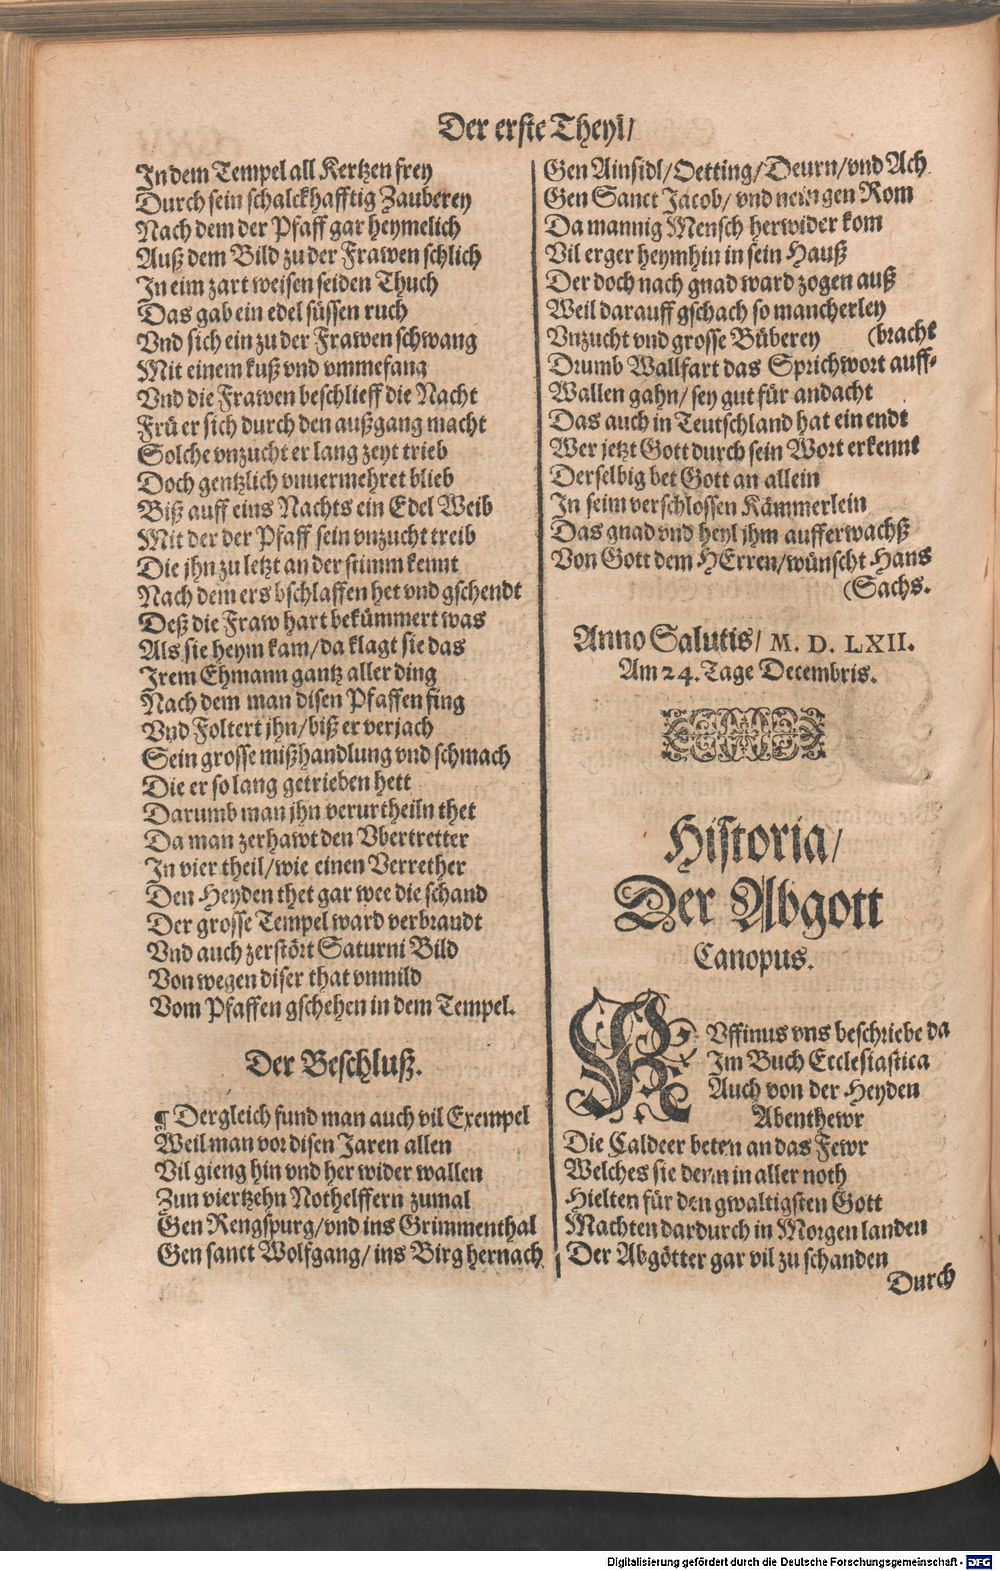 Der erste Theyl/
In dem Tempel all Kertzen frey
Durch sein schalckhafftig Zauberey
Nach dem der Pfaff gar heymelich
Auß dem Bild zu der Frawen schlich
In eim zart weisen seiden Thuch
Das gab ein edel süssen ruch
Vnd sich ein zu der Frawen schwang
Mit einem kuß vnd vmmefang
Vnd die Frawen beschlieff die Nacht
Frü er sich durch den außgang macht
Solche vnzucht er lang zeyt trieb
Doch gentzlich vnuermehret blieb
Biß auff eins Nachts ein Edel Weib
Mit der der Pfaff sein vnzucht treib
Die jhn zu letzt an der stimm kennt
Nach dem ers bschlaffen het vnd gschendt
Deß die Fraw hart bekümmert was
Als sie heym kam/da klagt sie das
Irem Ehmann gantz aller ding
Nach dem man disen Pfaffen fing
Vnd Foltert jhn/biß er verjach
Sein grosse mißhandlung vnd schmach
Die er so lang getrieben hett
Darumb man jhn verurtheiln thet
Da man zerhawt den Vbertretter
In vier theil/wie einen Verrether
Den Heyden thet gar wee die schand
Der grosse Tempel ward verbrandt
Vnd auch zerstört Saturni Bild
Von wegen diser that vnmild
Vom Pfaffen gschehen in dem Tempel.
Der Beschluß.
¶ Dergleich fund man auch vil Exempel
Weil man vor disen Jaren allen
Vil gieng hin vnd her wider wallen
Zun viertzehn Nothelffern zumal
Gen Rengspurg/vnd ins Grimmenthal
Gen sanct Wolfgang/ins Birg hernach
Gen Ainsidl/Oetting/Deurn/vnd Ach
Gen Sanct Jacob/ vnd nein gen Rom
Da mannig Mensch herwider kom
Vil erger heymhin in sein Hauß
Der doch nach gnad ward zogen auß
Weil darauff gschach so mancherley
Vnzucht vnd grosse Büberey (bracht
Drumb Wallfart das Sprichwort auff-
Wallen gahn/ sey gut für andacht
Das auch in Teutschland hat ein endt
Wer jetzt Gott durch sein Wort erkennt
Derselbig bet Gott an allein
In seim verschlossen Kämmerlein
Das gnad vnd heyl jhm aufferwachß
Von Gott dem HErren/wünscht Hans
(Sachs.
Anno Salutis/ M. D. LXII.
Am 24. Tage Decembris.
Historia/
Der Abgott
Canopus.
RVffinus vns beschriebe da
Im Buch Ecclesiastica
Auch von der Heyden
Abenthewr
Die Caldeer beten an das Fewr
Welches sie denn in aller noth
Hielten für den gwaltigsten Gott
Machten dardurch in Morgen landen
Der Abgötter gar vil zu schanden
Durch
Digitalisierung gefördert durch die Deutsche Forschungsgemeinschaft - DFG